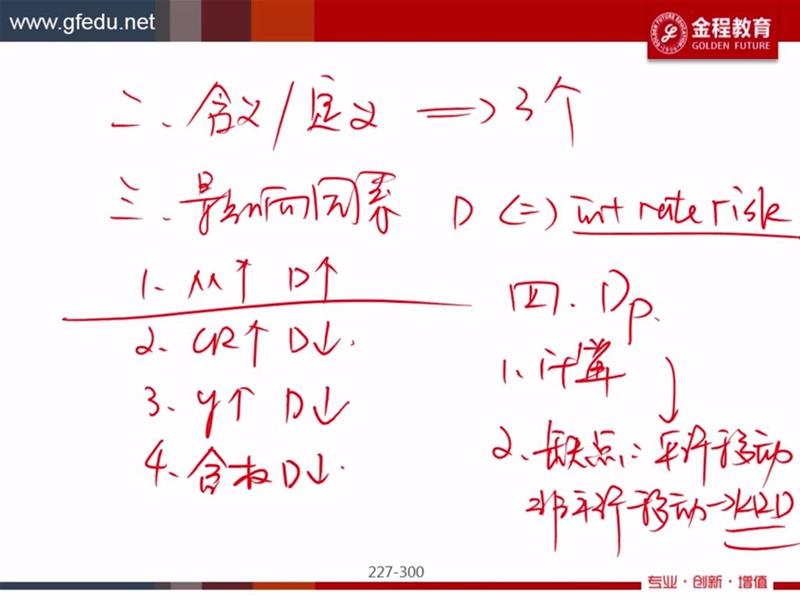 www.gfedu.net
金程教育
GOLDEN FUTURE
二、含义/定义 => 3个
三、影响因素 D (=) int rate risk
1. M↑ D↑
2. CR↑ D↓.
3. y↑ D↓
4. 含权D↓.
四. Dp.
1. 计算
2. 缺点: 平行移动
非平行移动→KRD
227-300
专业·创新·增值